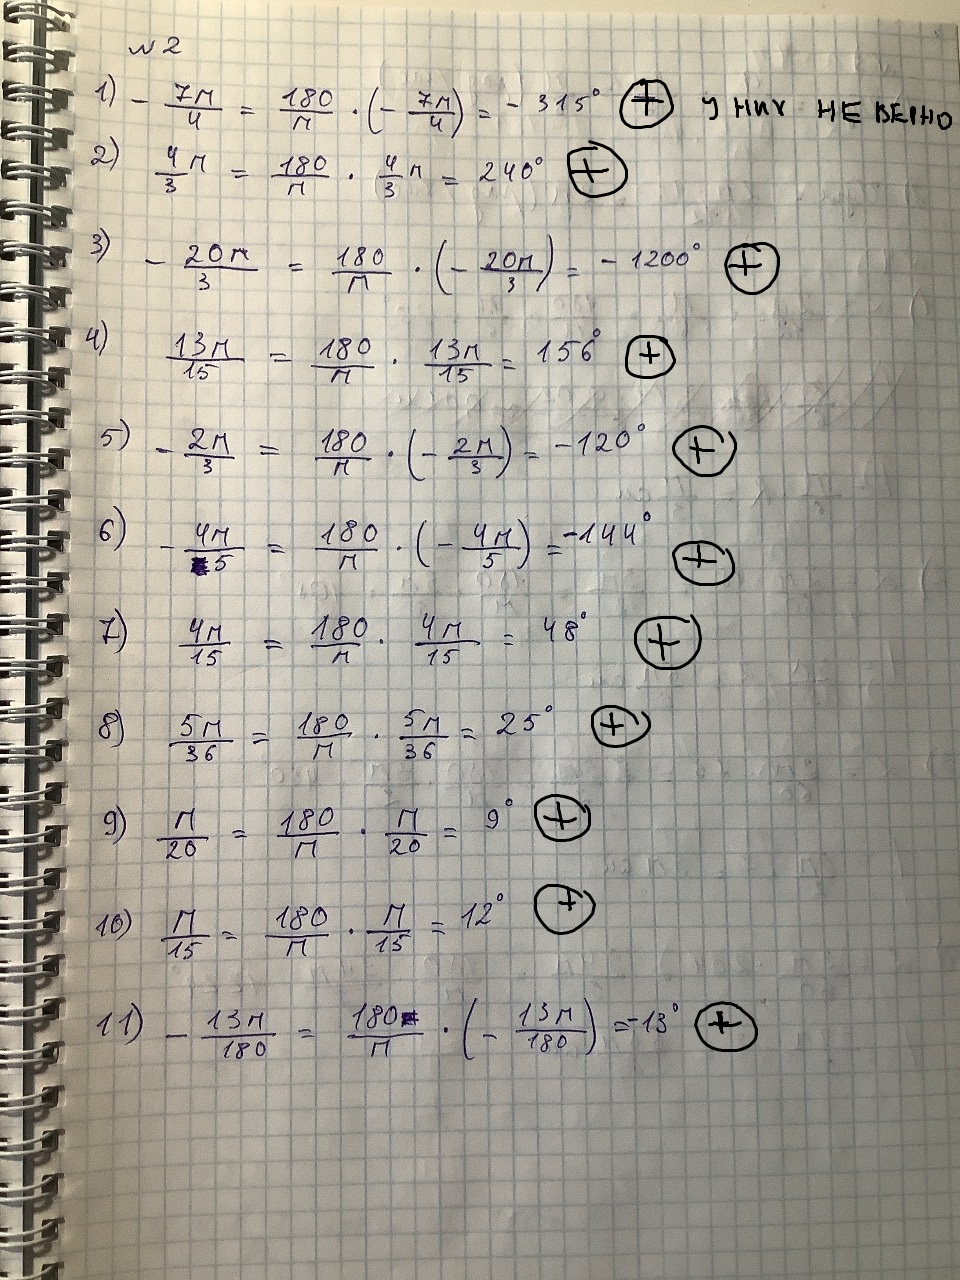 №2
1) - 7π/4 = 180/π · (- 7π/4) = - 315° + У НИХ НЕ ВЕРНО
2) 4/3 π = 180/π · 4/3 π = 240° +
3) - 20π/3 = 180/π · (- 20π/3) = - 1200° +
4) 13π/15 = 180/π · 13π/15 = 156° +
5) - 2π/3 = 180/π · (- 2π/3) = -120° +
6) - 4π/5 = 180/π · (- 4π/5) = -144° +
7) 4π/15 = 180/π · 4π/15 = 48° +
8) 5π/36 = 180/π · 5π/36 = 25° +
9) π/20 = 180/π · π/20 = 9° +
10) π/15 = 180/π · π/15 = 12° +
11) - 13π/180 = 180/π · (- 13π/180) = -13° +